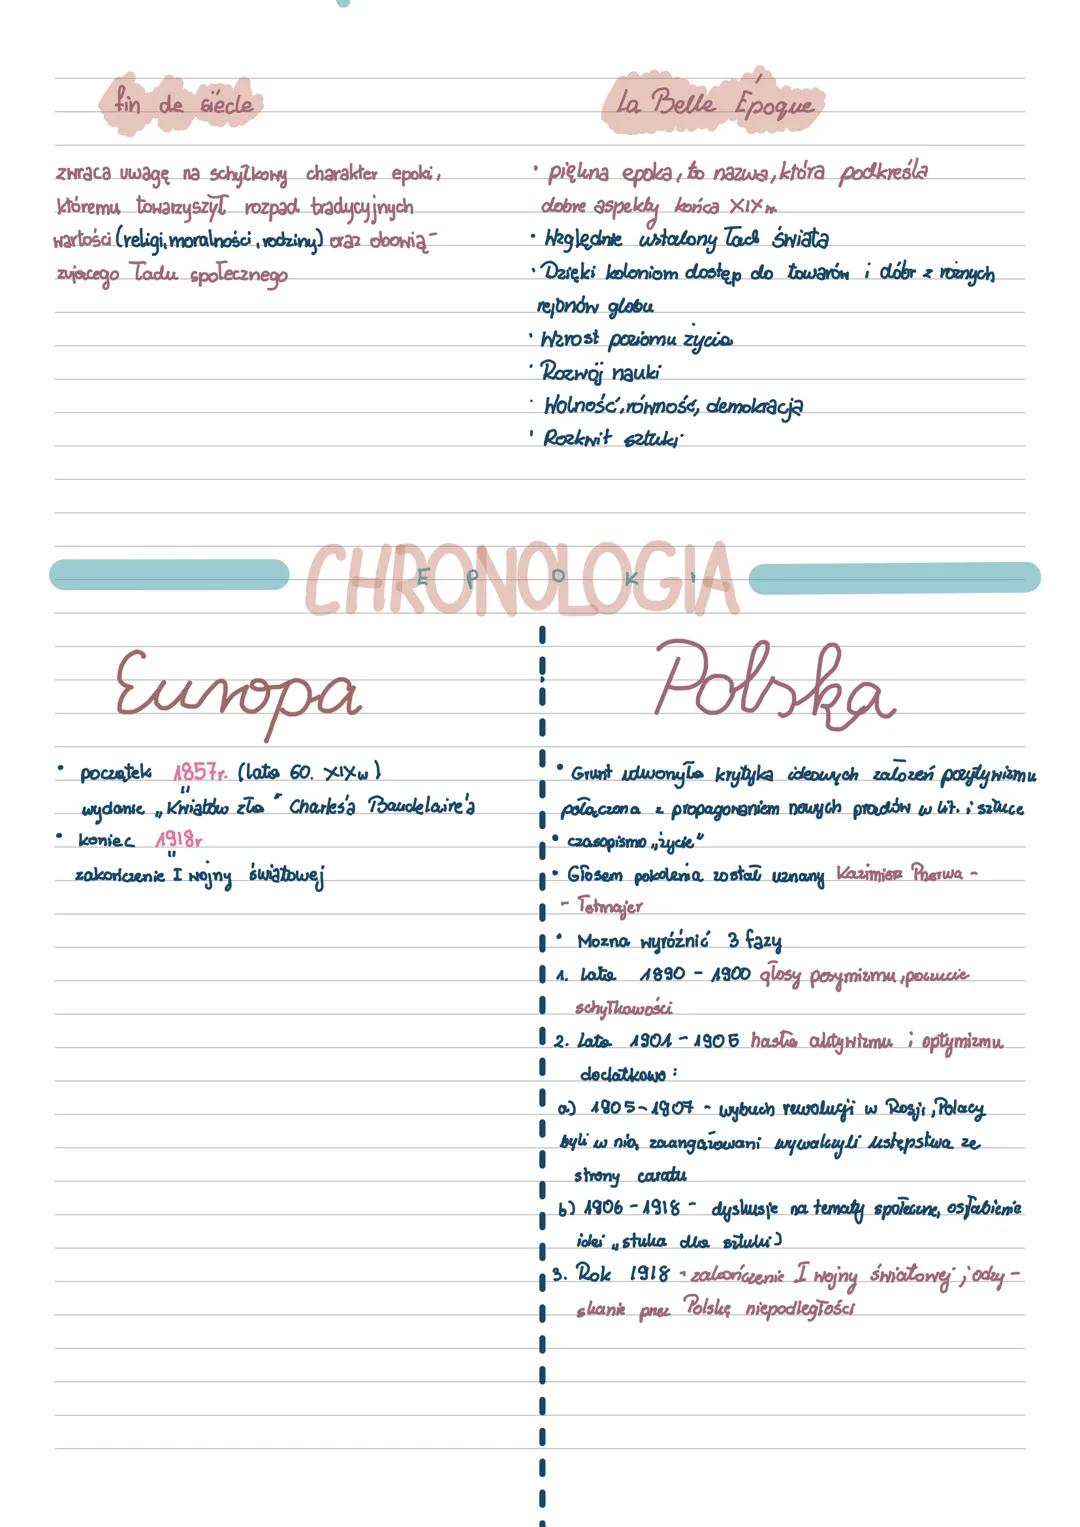 fin de siécle
zwraca uwagę na schyłkowy charakter epoki,
któremu towarzyszył rozpad tradycyjnych
wartości (religi, moralności, rodziny) oraz obowią-
zującego ładu społecznego
La Belle Époque
· piękna epoka, to nazwa, która podkreśla
dobre aspekty końca XIX w.
· Względnie ustalony ład świata
· Dzięki koloniom dostęp do towarów i dóbr z róznych
rejonów globu
· Wzrost poziomu życia
· Rozwój nauki
· Wolność, równość, demokracja
· Rozkwit sztuki
CHRONOLOGIA
EPOKI
Europa
• początek 1857r. (lata 60. XIXw)
"
wydanie „Kwiatów zła" Charles'a Baudelaire'a
• koniec 1918r
"
zakończenie I wojny światowej
Polska
• Grunt udwonyła krytyka ideowych założeń pozytywizmu
połączona z propagowaniem nowych prądów w lit. i sztuce
• czasopismo „życie"
• Głosem pokolenia został uznany Kazimierz Pherwa -
- Tetmajer
• Mozna wyróżnić 3 fazy
1. Lata 1890 - 1900 głosy pesymizmu, poczucie
schyłkowości
2. Lata 1901 - 1905 hasła aktywizmu i optymizmu
dodatkowo:
a) 1905-1907 - wybuch rewolucji w Rosji, Polacy
byli w nią zaangażowani wywalczyli ustępstwa ze
strony caratu
b) 1906 - 1918 - dyskusje na tematy społeczne, osłabienie
idei „stuka dla sztuki)
3. Rok 1918 - zakończenie I wojny światowej i odzy-
skanie przez Polskę niepodległości